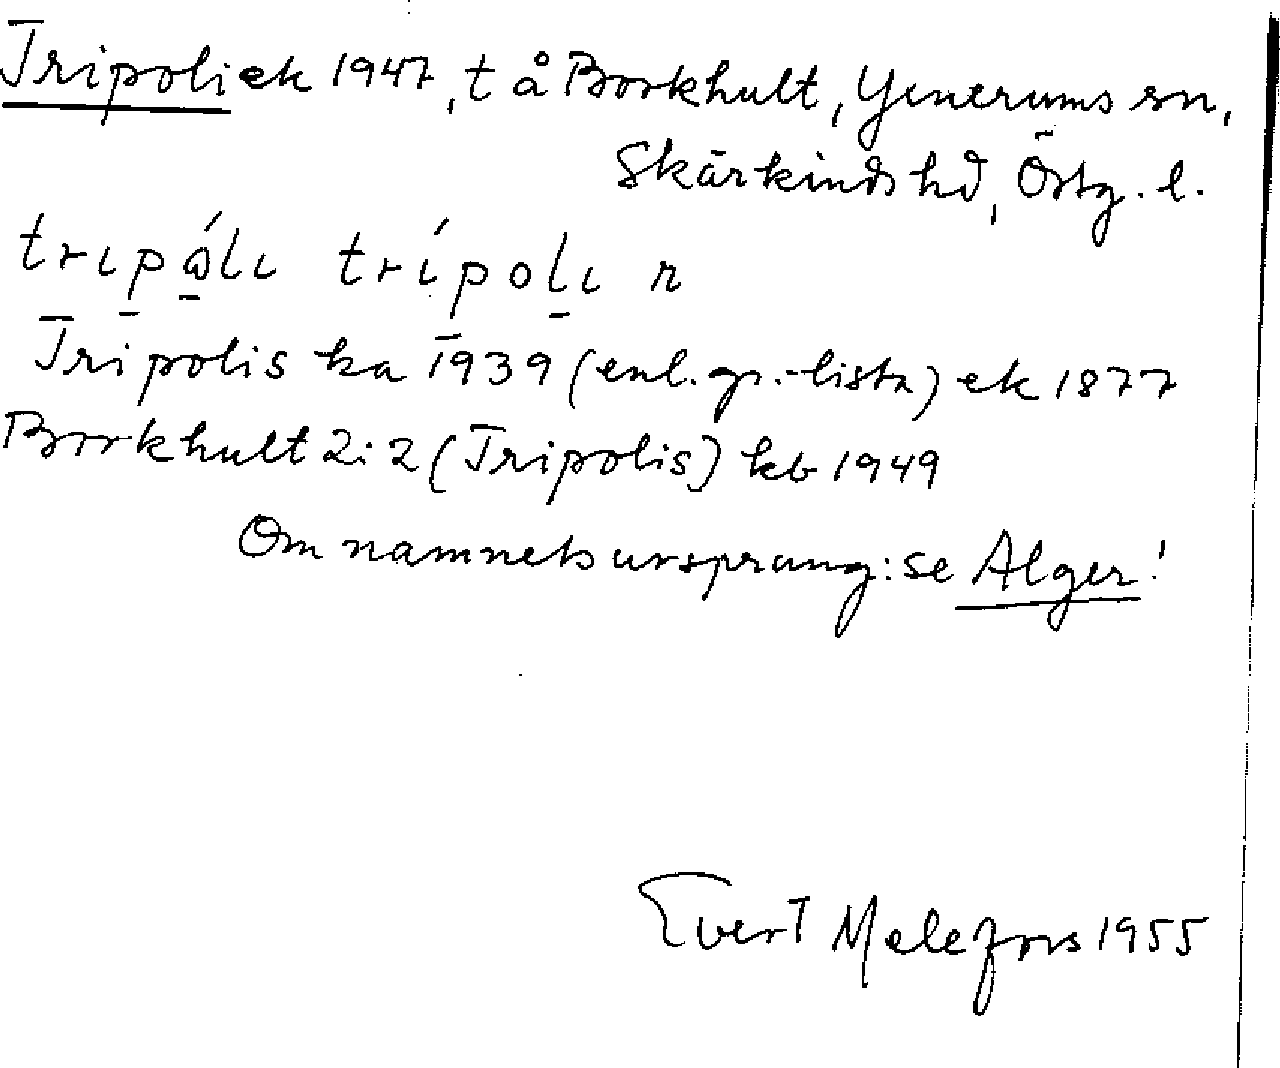 Tripoli ek 1947, t å Borkhult, Yxnerums sn,
Skärkinds hd, Östg. l.
trɩpålɩ trípolɩ n
Tripolis ka 1939 (enl. gr.-lista) ek 1877
Borkhult 2:2 (Tripolis) kb 1949
Om namnets ursprung: se Alger!
Evert Melefors 1955